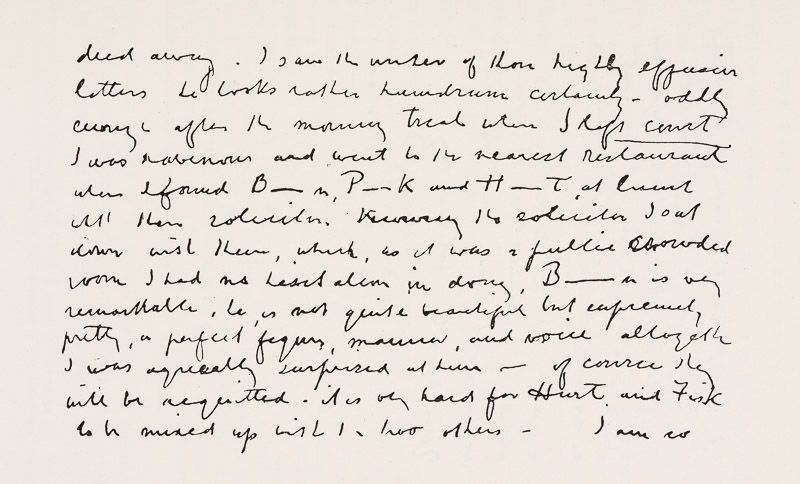 died away. I saw the writer of those highly effusive
letters he looks rather humdrum certainly - oddly
enough after the morning treat when I left court
I was ravenous and went to the nearest restaurant
when I found B—n, P—K and H—T, at lunch
with their solicitor. Knowing the solicitor I sat
down with them, which, as it was a public crowded
room I had no hesitation in doing, B—n is very
remarkable, he is not quite beautiful but extremely
pretty, a perfect figure, manner, and voice altogether
I was agreeably surprised at him - of course they
will be acquitted - it is very hard for Hurt and Fisk
to be mixed up with the two others - I am so